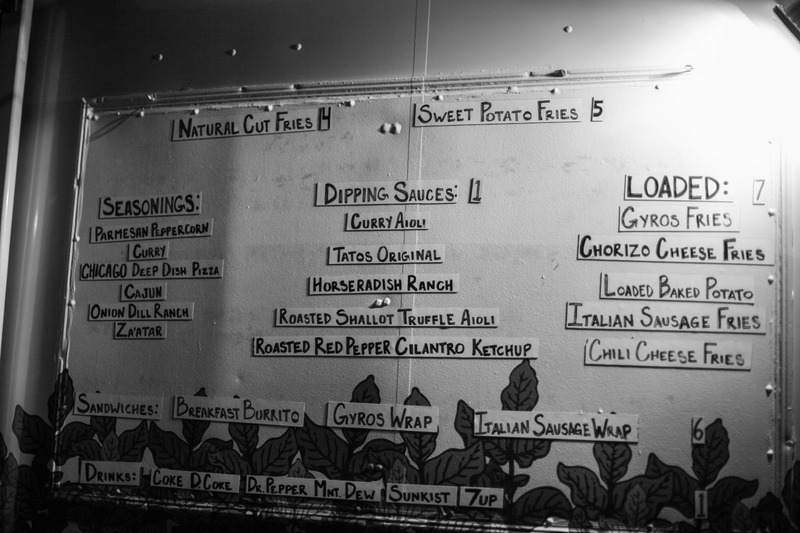 NATURAL CUT FRIES 4
SWEET POTATO FRIES 5
SEASONINGS:
PARMESAN PEPPERCORN
CURRY
CHICAGO DEEP DISH PIZZA
CAJUN
ONION DILL RANCH
ZA'ATAR
DIPPING SAUCES: 1
CURRY AIOLI
TATOS ORIGINAL
HORSERADISH RANCH
ROASTED SHALLOT TRUFFLE AIOLI
ROASTED RED PEPPER CILANTRO KETCHUP
LOADED: 7
GYROS FRIES
CHORIZO CHEESE FRIES
LOADED BAKED POTATO
ITALIAN SAUSAGE FRIES
CHILI CHEESE FRIES
SANDWICHES: BREAKFAST BURRITO GYROS WRAP ITALIAN SAUSAGE WRAP 6
DRINKS: COKE D.COKE DR. PEPPER MNT. DEW SUNKIST 7UP 1